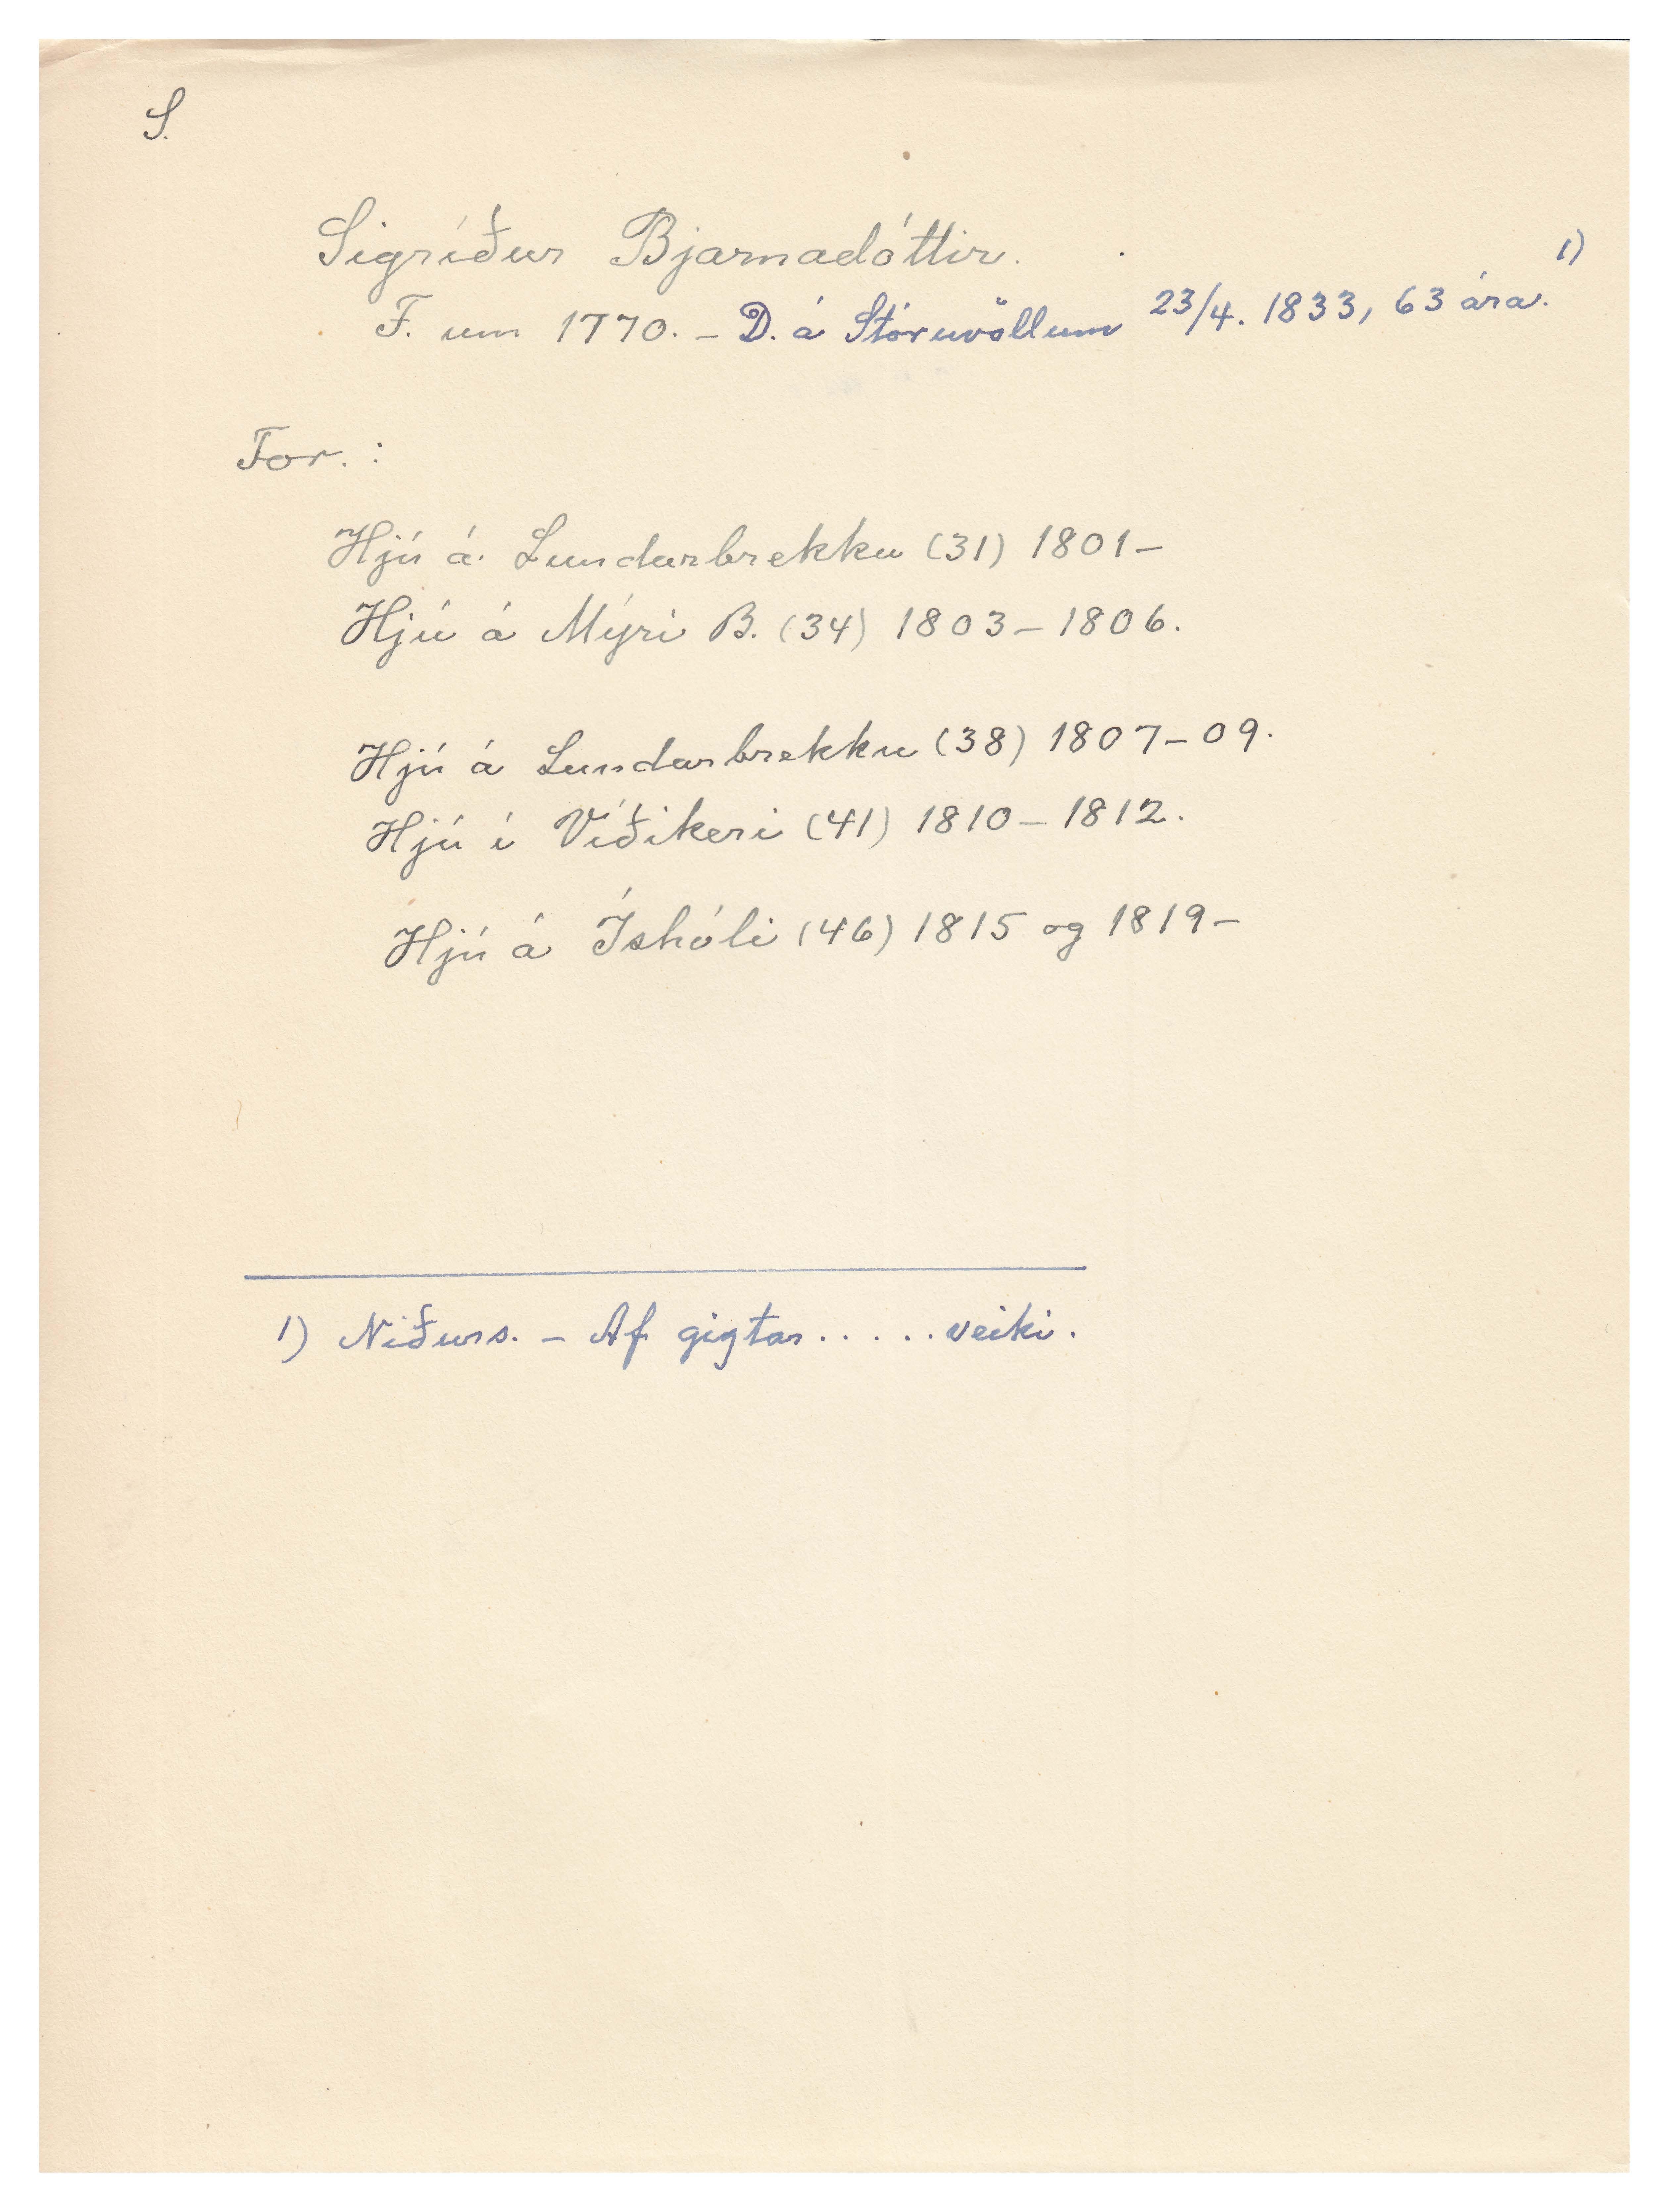 S.
Sigríður Bjarnadóttir.
F. um 1770. – D. á Stóruvöllum 23/4. 1833, 63 ára. 1)
For. :
Hjú á Lundarbrekku (31) 1801–
Hjú á Mýri B. (34) 1803–1806.
Hjú á Lundarbrekku (38) 1807–09.
Hjú í Víðikeri (41) 1810–1812.
Hjú á Íshóli (46) 1815 og 1819–
1) Niðurs. – Af gigtar.....veiki.